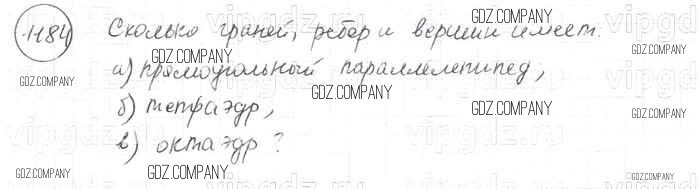 1184 Сколько граней, ребер и вершин имеет:
GDZ.COMPANY
а) прямоугольный параллелепипед,
GDZ.COMPANY
GDZ.COMPANY
GDZ.COMPANY
б) тетраэдр,
в) октаэдр?
GDZ.COMPANY
GDZ.COMPANY
GDZ.COMPANY
GDZ.COMPANY
vipgdz.ru